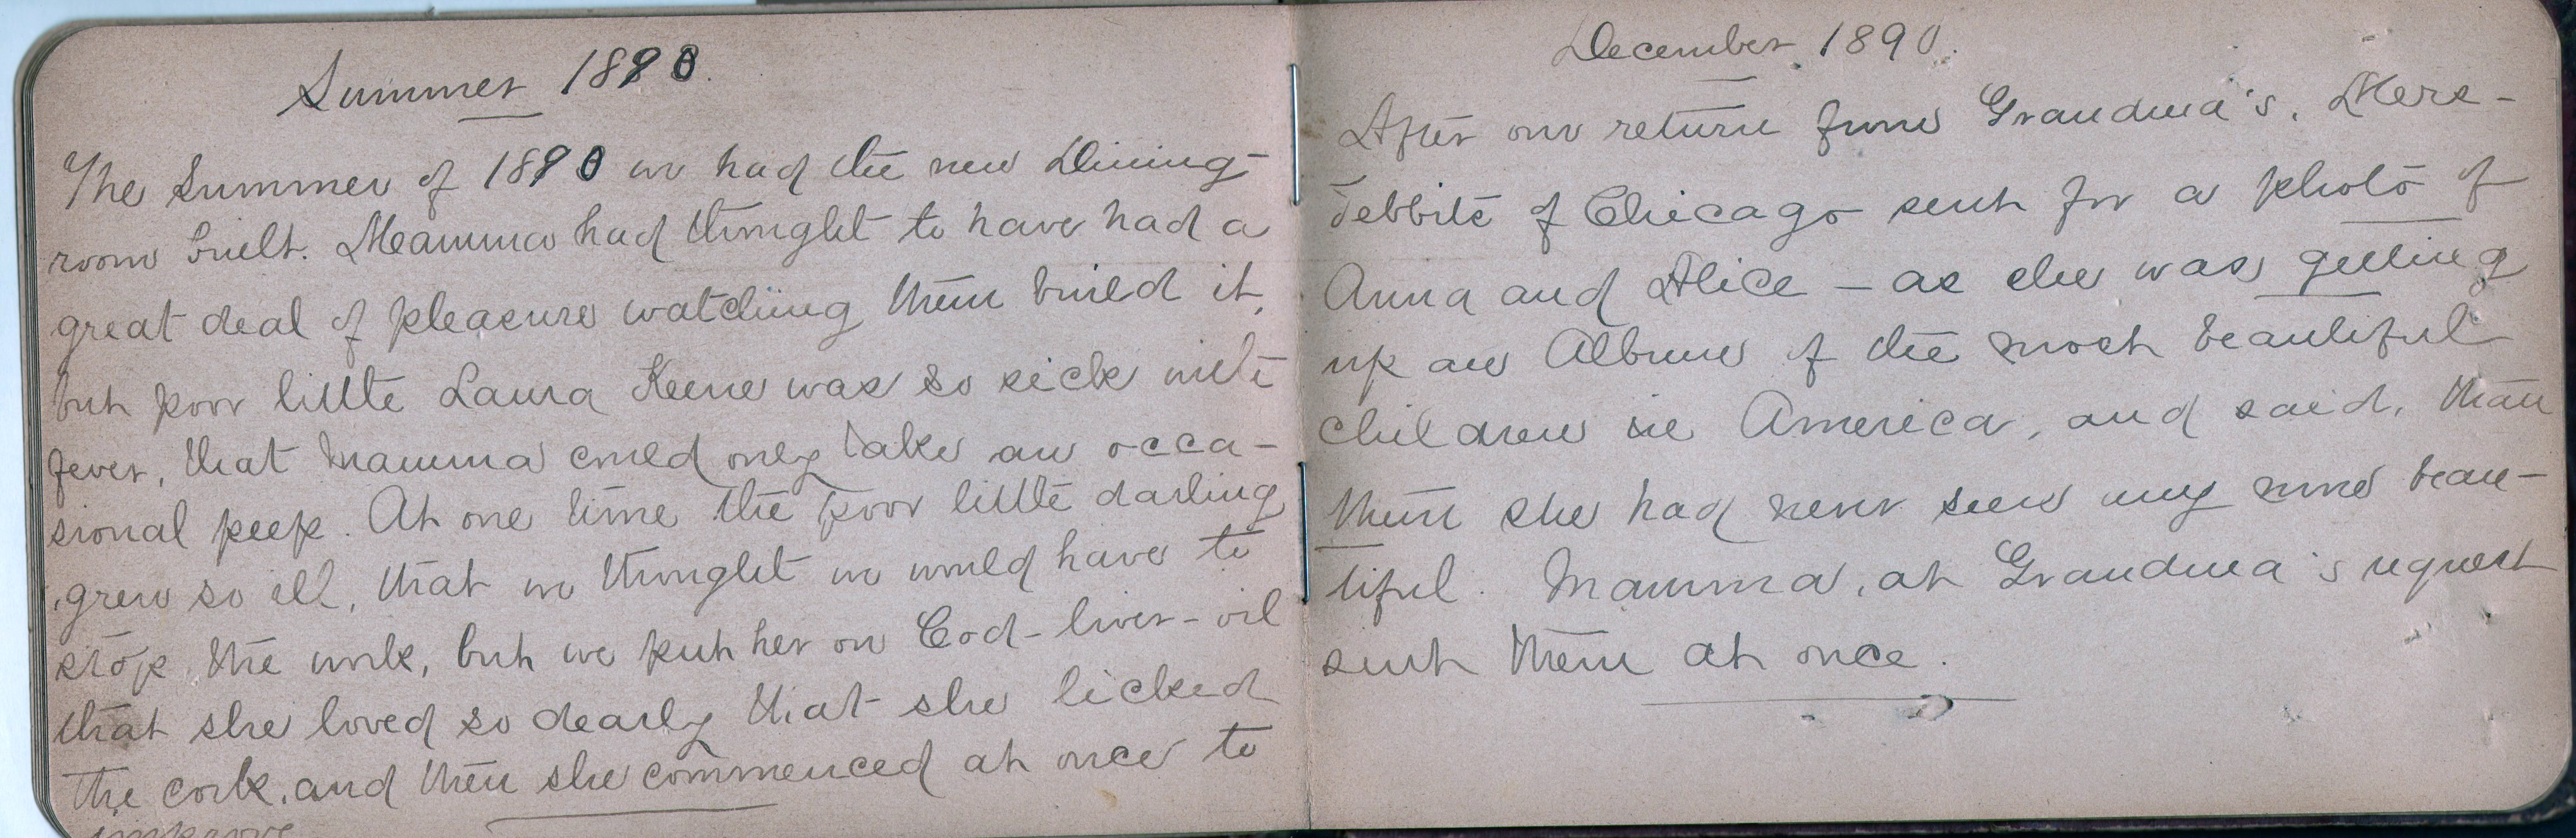 Summer 1890.
The Summer of 1890 we had the new Dining-
room built. Mamma had thought to have had a
great deal of pleasure watching them build it,
but poor little Laura Keene was so sick with
fever, that Mamma could only take an occa-
sional peep. At one time the poor little darling
grew so ill, that we thought we would have to
stop the work, but we put her on Cod-liver-oil
that she loved so dearly that she licked
the cork, and then she commenced at once to
improve
December 1890.
After our return from Grandma's,
of Chicago sent for a photo of
Anna and Alice - as she was getting
up an Album of the most beautiful
children in America, and said, than
them she had never seen any more beau-
tiful. Mamma, at Grandma's request
sent them at once.